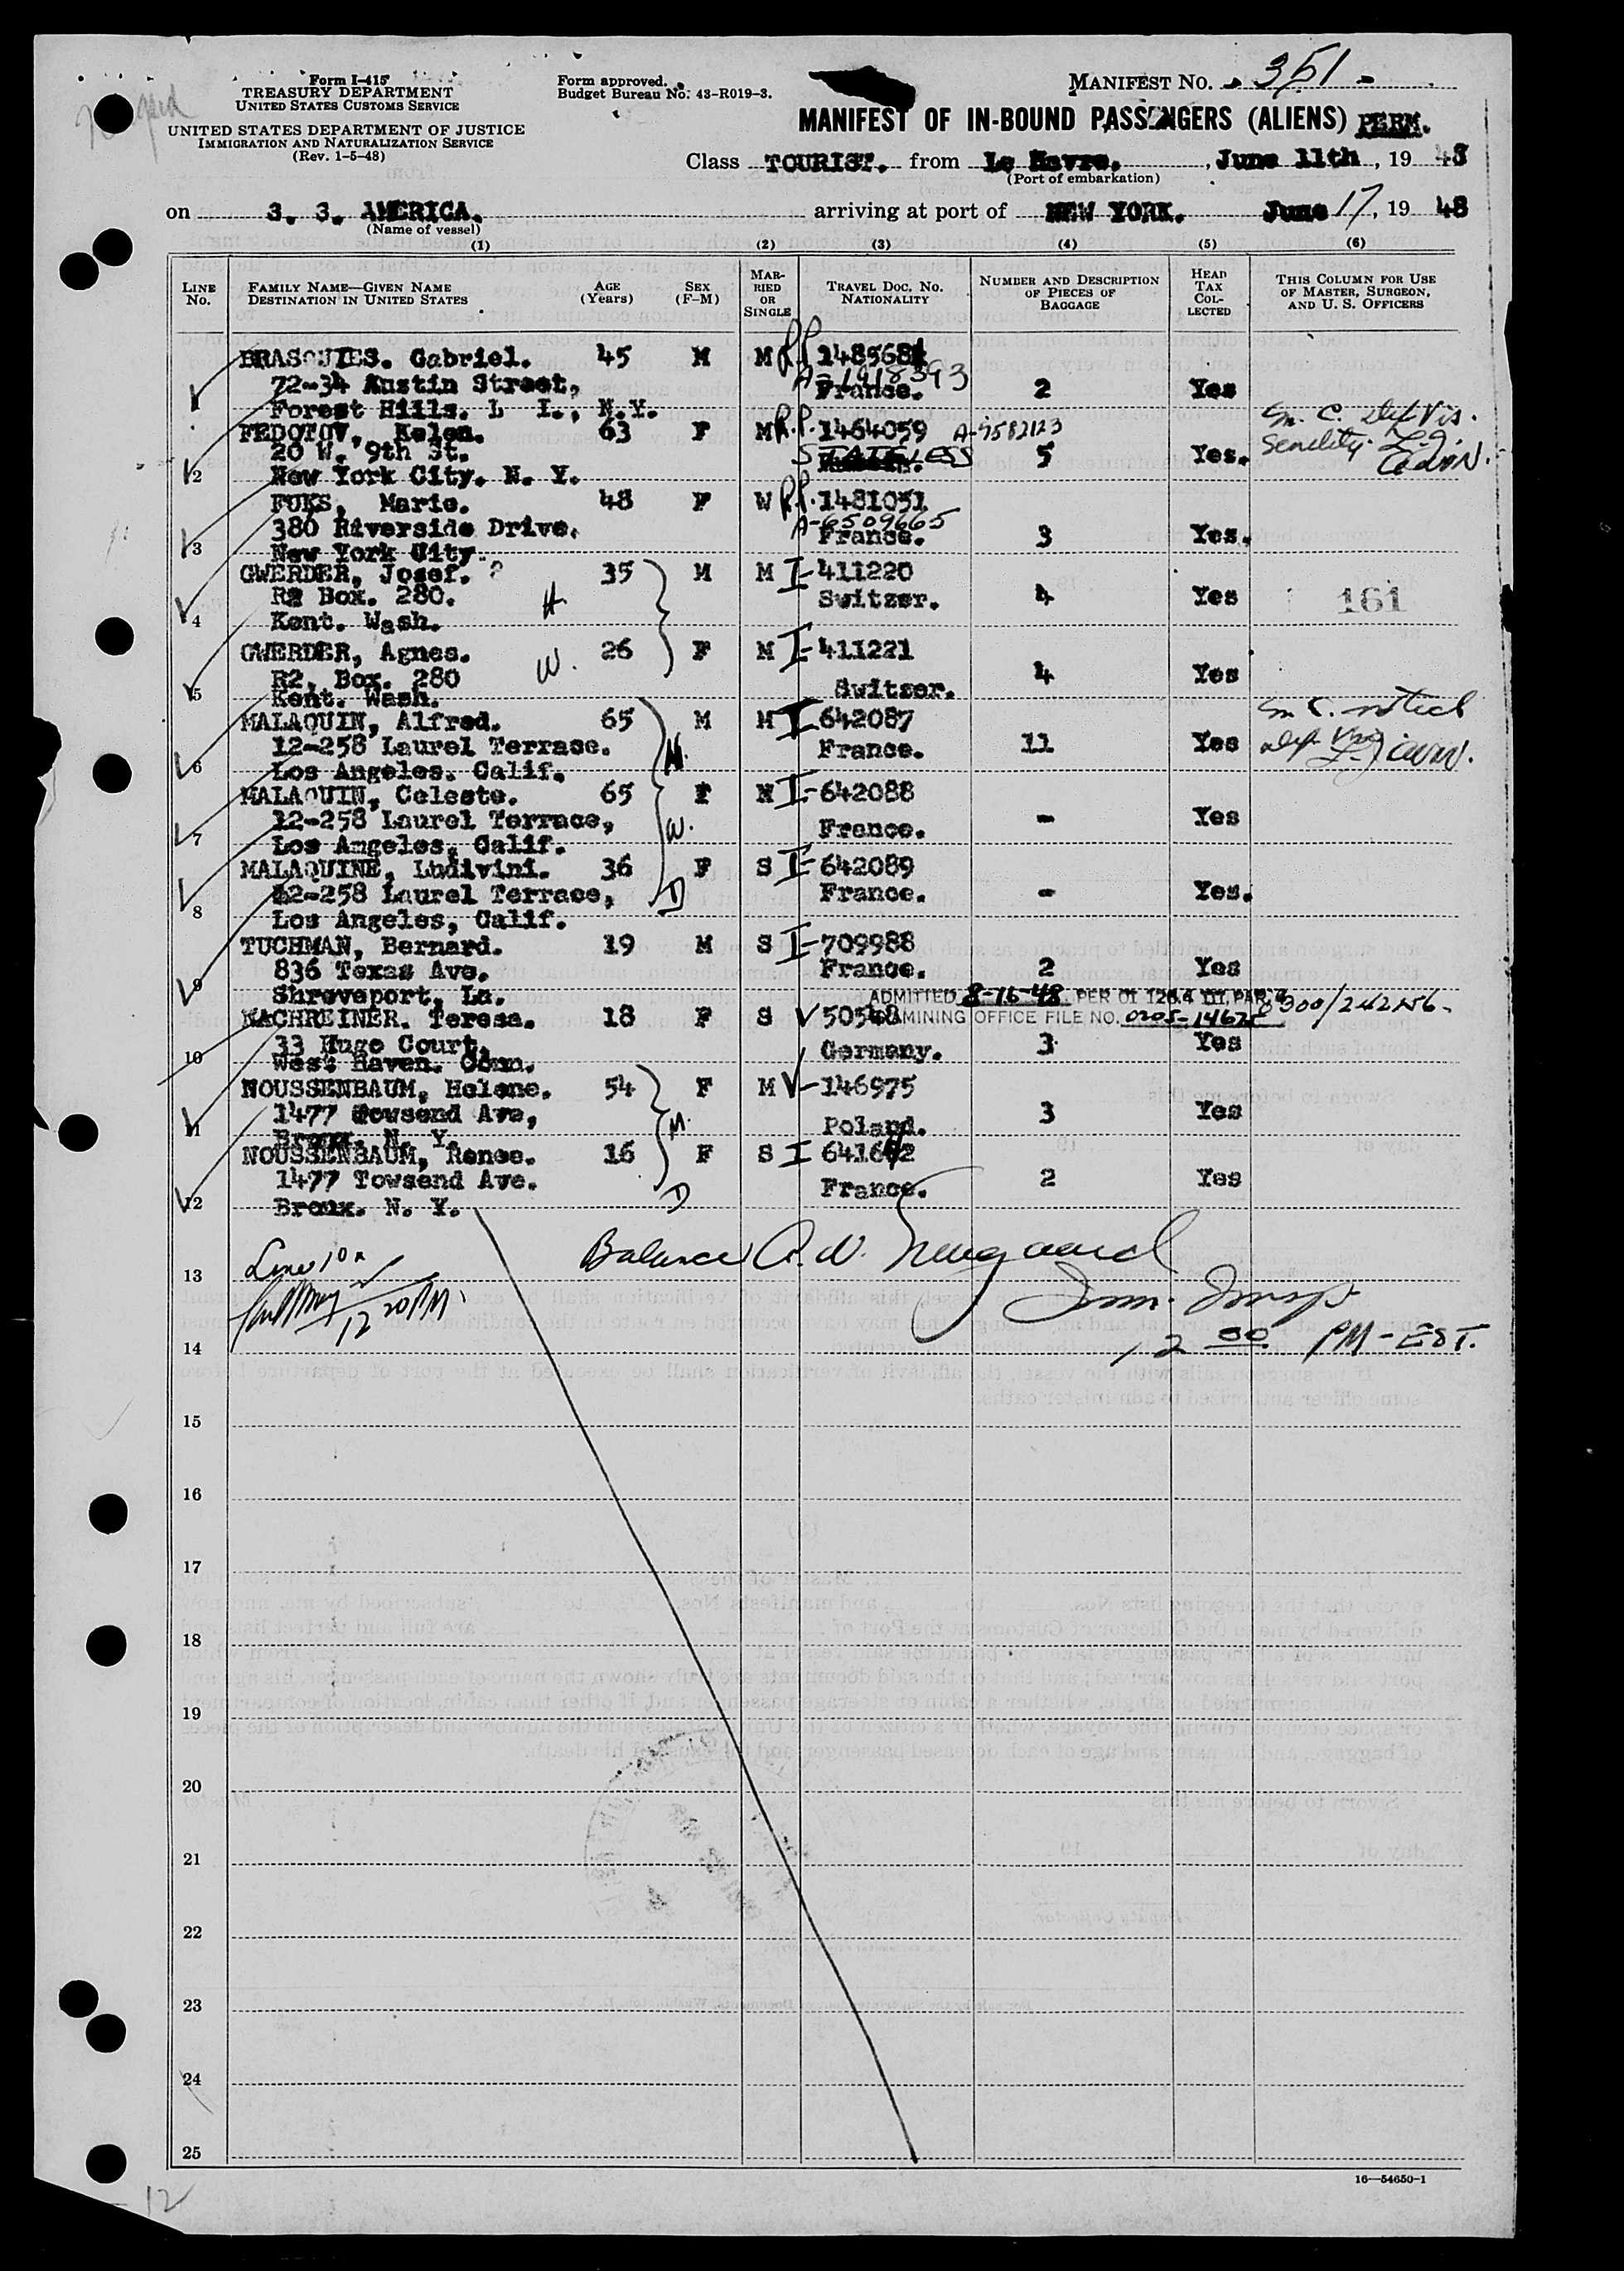 Form I-415
TREASURY DEPARTMENT
UNITED STATES CUSTOMS SERVICE
UNITED STATES DEPARTMENT OF JUSTICE
IMMIGRATION AND NATURALIZATION SERVICE
(Rev. 1-5-48)
Form approved.
Budget Bureau No. 43-R019-3.
MANIFEST NO. - 351 -
MANIFEST OF IN-BOUND PASSENGERS (ALIENS) PERM.
Class TOURIST. from Le Havre. , June 11th , 19 48
(Port of embarkation)
on S. S. AMERICA. arriving at port of NEW YORK. June 17, 19 48
(Name of vessel)
(1) (2) (3) (4) (5) (6)
LINE No. FAMILY NAME—GIVEN NAME DESTINATION IN UNITED STATES AGE (Years) SEX (F-M) MARRIED OR SINGLE TRAVEL DOC. NO. NATIONALITY NUMBER AND DESCRIPTION OF PIECES OF BAGGAGE HEAD TAX COLLECTED THIS COLUMN FOR USE OF MASTER, SURGEON, AND U. S. OFFICERS
BRASQUIES. Gabriel. 45 M M R.P. 1485681
A-7918393
72-34 Austin Street, France. 2 Yes
1 Forest Hills. L I., N.Y.
FEDOTOV, Helen. 63 F M R.P. 1464059 A-7582123 Sm. C. Def Vis.
20 W. 9th St. STATELESS 5 Yes. Senility.
2 New York City. N. Y.
FUKS, Marie. 48 F W R.P. 1481051
A-6509665
380 Riverside Drive. France. 3 Yes.
3 New York City.
GWERDER, Josef. ? 35 M M I-411220
R2 Box. 280. H Switzer. 4 Yes 161
4 Kent. Wash.
GWERDER, Agnes. 26 F M I-411221
R2, Box. 280 W. Switzer. 4 Yes
5 Kent. Wash.
MALAQUIN, Alfred. 65 M M I-642087 Sm C. noted
12-258 Laurel Terrace. H. France. 11 Yes Def. Vis.
6 Los Angeles. Calif.
MALAQUIN, Celeste. 65 F M I-642088
12-258 Laurel Terrace, W. France. - Yes
7 Los Angeles, Calif.
MALAQUINE, Ludivini. 36 F S I-642089
12-258 Laurel Terrace, D France. - Yes.
8 Los Angeles, Calif.
TUCHMAN, Bernard. 19 M S I-709988
836 Texas Ave. France. 2 Yes
9 Shreveport, La.
ADMITTED 8-16-48 PER OI 126.4 III PAR. 4 300/242156-
MACHREINER. Teresa. 18 F S V 50548 EXAMINING OFFICE FILE NO. 0205-14675
33 Hugo Court, Germany. 3 Yes
10 West Haven. Conn.
NOUSSENBAUM, Helene. 54 F M V-146975
1477 Towsend Ave, M. Poland. 3 Yes
11 Bronx. N. Y.
NOUSSENBAUM, Renee. 16 F S I 641642
1477 Towsend Ave. D France. 2 Yes
12 Bronx. N. Y.
Line 10
Balance
13
12 20 PM.
12 00 PM-EST.
14
15
16
17
18
19
20
21
22
23
24
25
16—54650-1
12